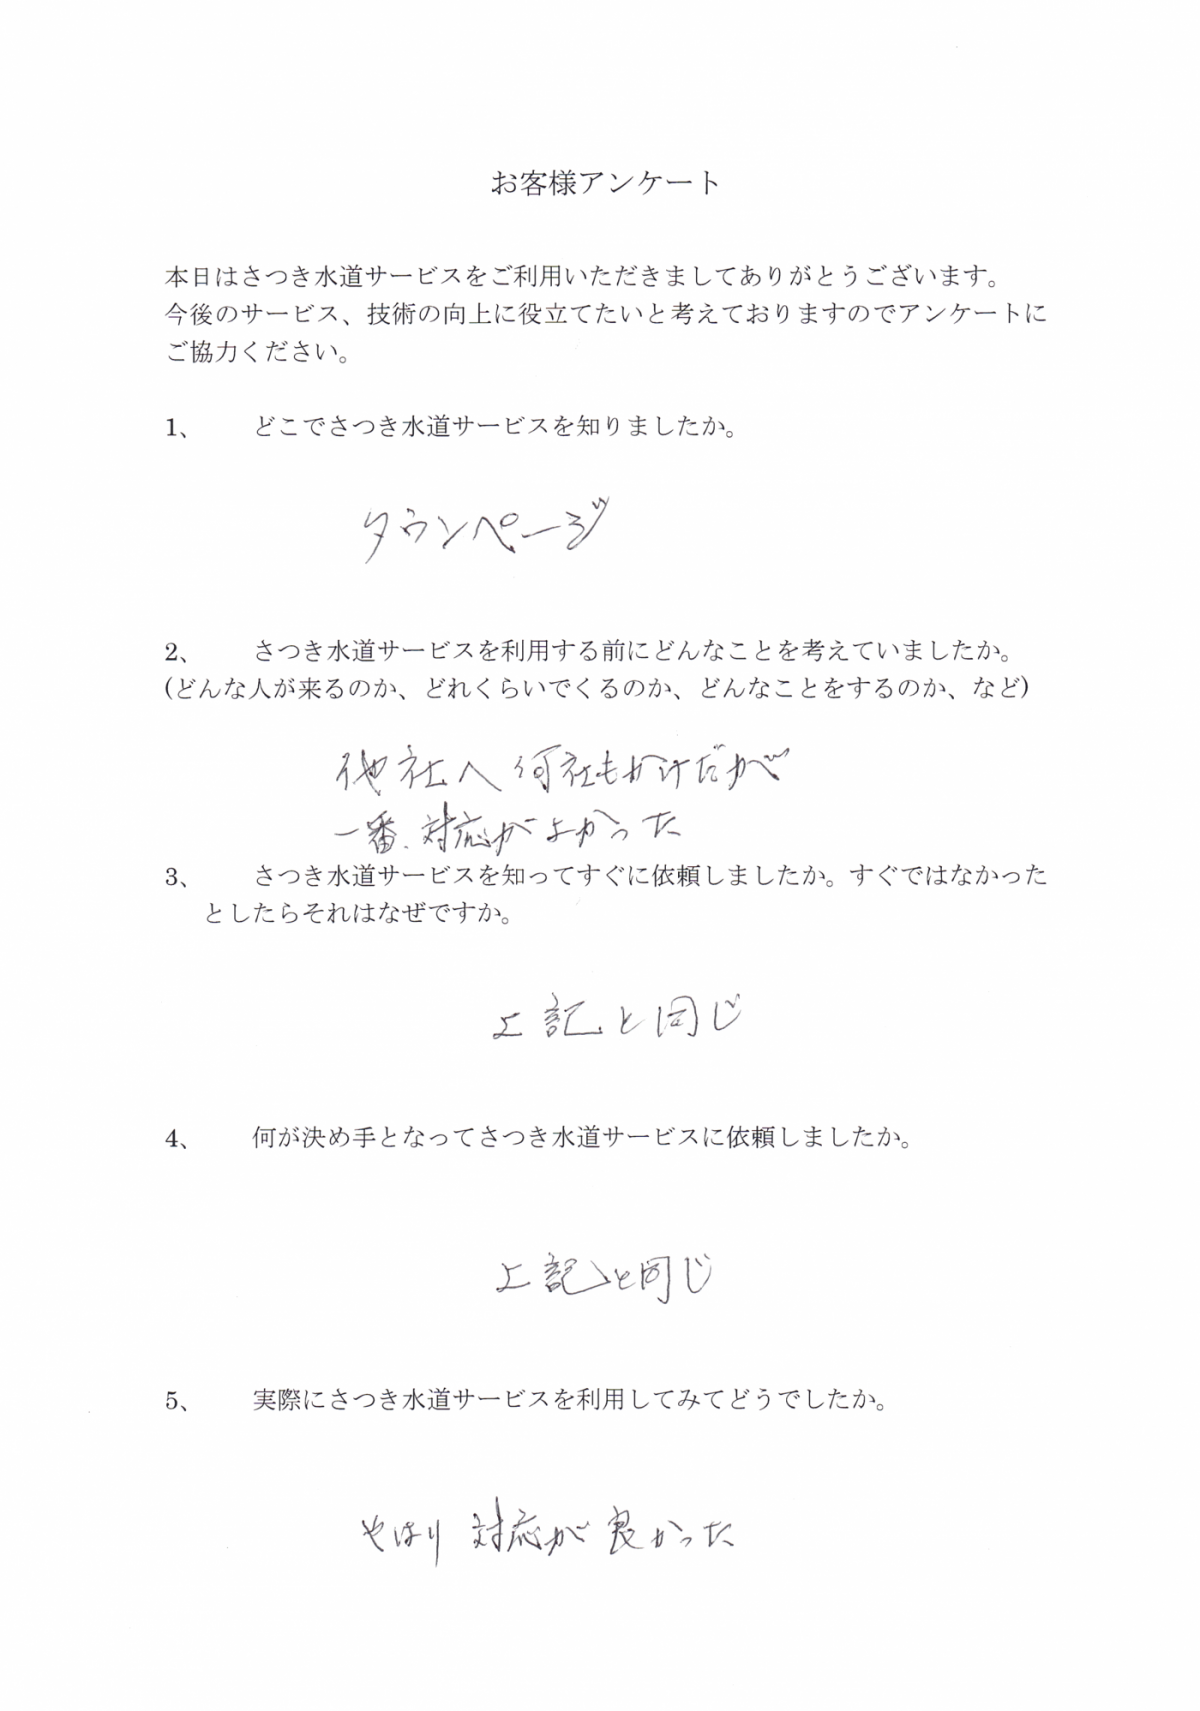 お客様アンケート
本日はさつき水道サービスをご利用いただきましてありがとうございます。
今後のサービス、技術の向上に役立てたいと考えておりますのでアンケートに
ご協力ください。
1、 どこでさつき水道サービスを知りましたか。
タウンページ
2、 さつき水道サービスを利用する前にどんなことを考えていましたか。
(どんな人が来るのか、どれくらいでくるのか、どんなことをするのか、など)
他社へ何社もかけだが
一番、対応がよかった
3、 さつき水道サービスを知ってすぐに依頼しましたか。すぐではなかった
としたらそれはなぜですか。
上記と同じ
4、 何が決め手となってさつき水道サービスに依頼しましたか。
上記と同じ
5、 実際にさつき水道サービスを利用してみてどうでしたか。
やはり対応が良かった